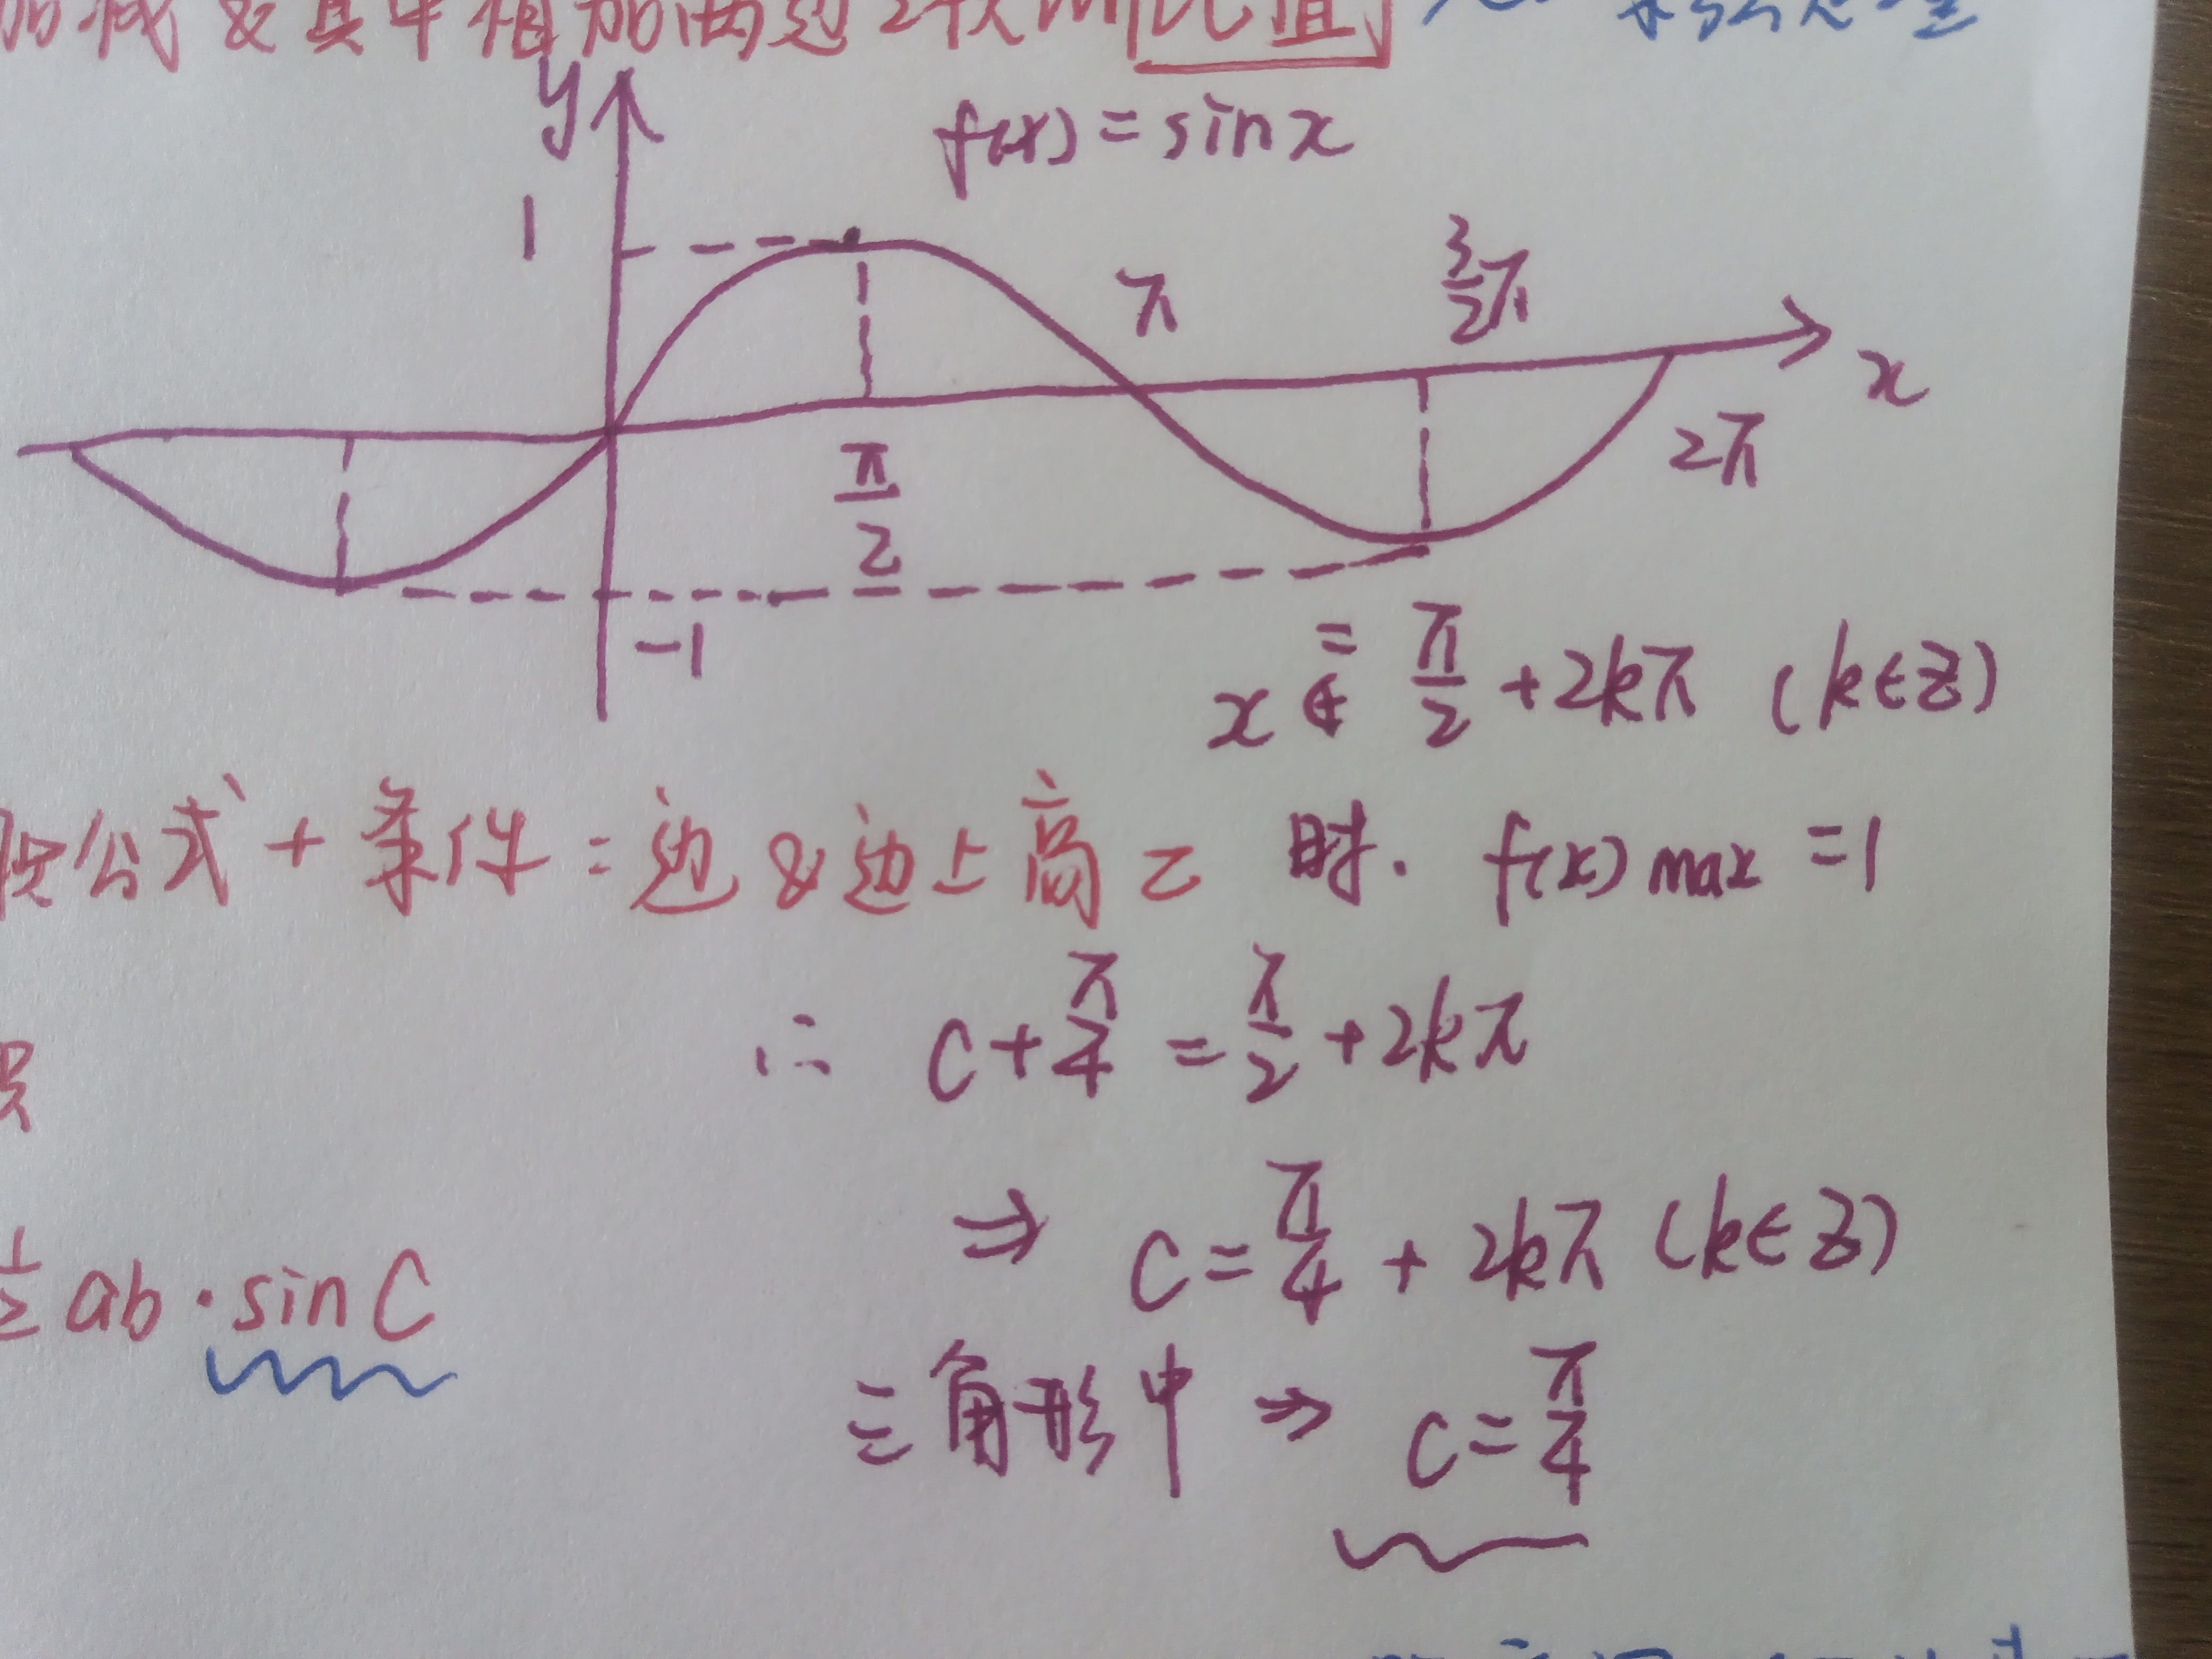 加减 & 其中相加两边2次的比值
y
f(x) = sin x
1
π
3/2 π
x
π/2
2π
-1
x = π/2 + 2kπ (k∈Z)
公式 + 条件 = 边 & 边上高 = 时. f(x) max = 1
∴ C + π/4 = π/2 + 2kπ
⇒ C = π/4 + 2kπ (k∈Z)
1/2 ab · sin C
三角形中 ⇒ C = π/4